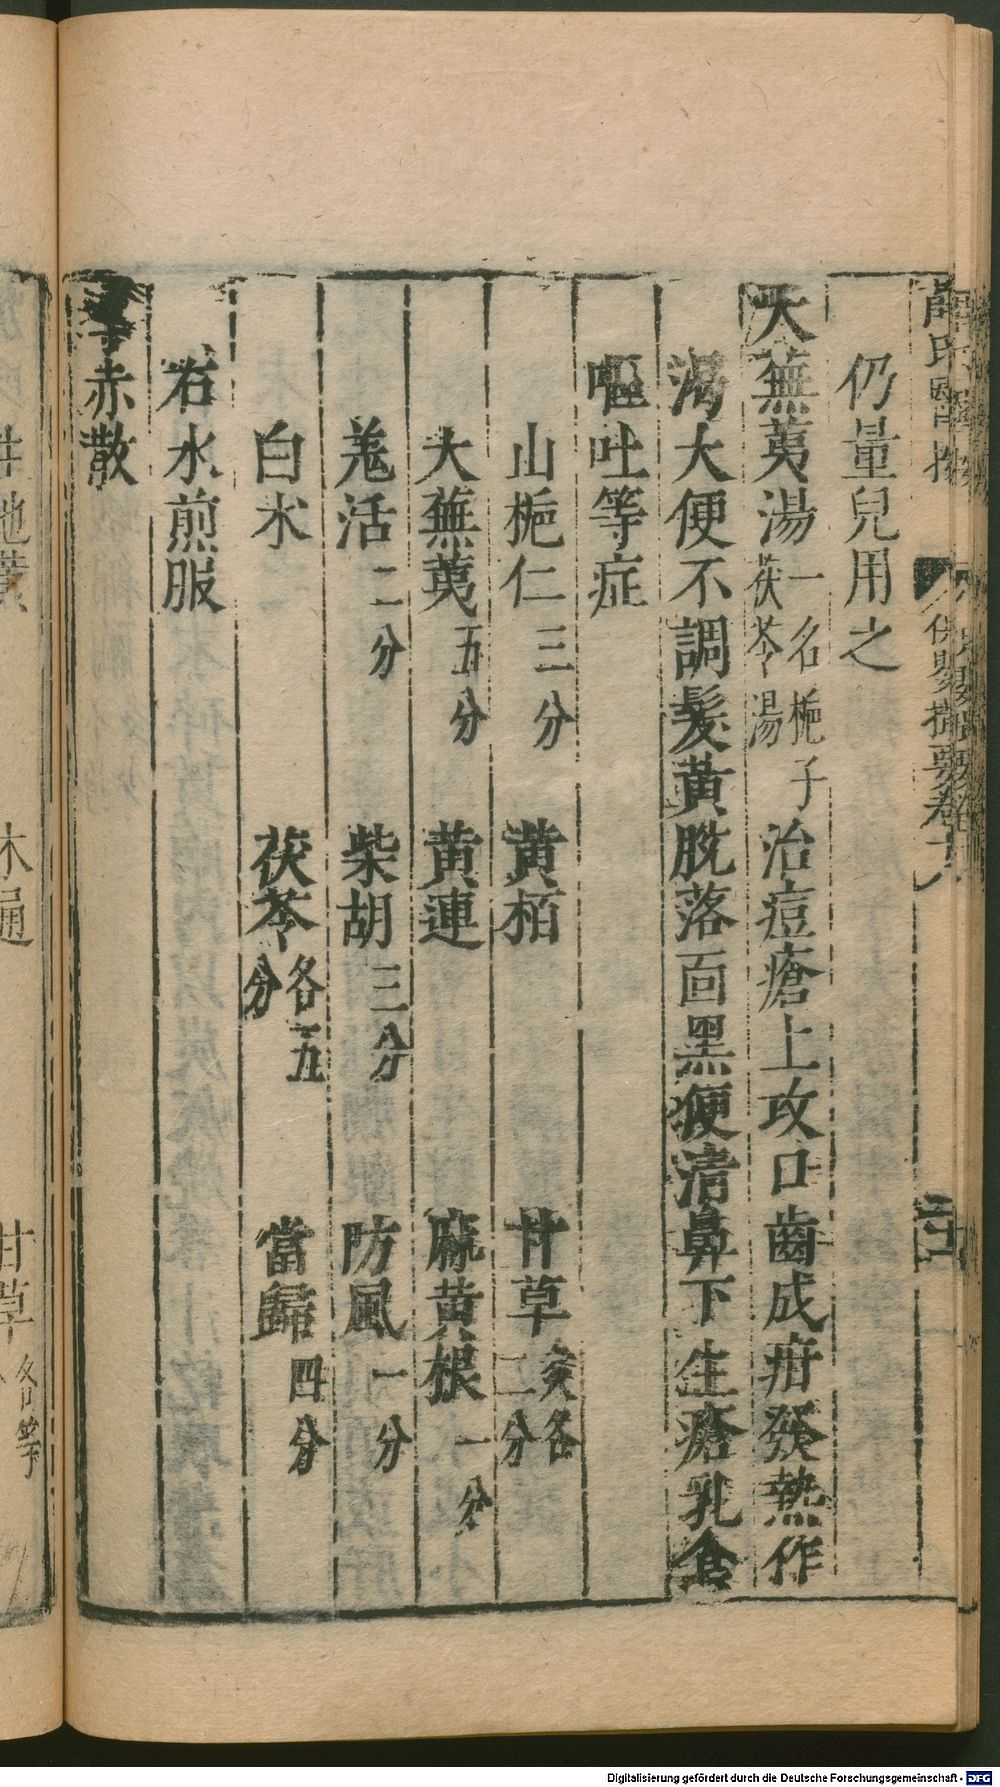 薛氏醫按　保嬰撮要卷十八
仍量兒用之
大蕪荑湯一名梔子茯苓湯　治痘瘡上攻口齒成疳發熱作
渴大便不調髮黃脫落面黑便清鼻下生瘡乳食
嘔吐等症
山梔仁三分　黃栢　甘草炙各二分
大蕪荑五分　黃連　麻黃根一分
羗活二分　柴胡三分　防風一分
白朮　茯苓各五分　當歸四分
右水煎服
赤散
生地黃　木通　甘草各等
Digitalisierung gefördert durch die Deutsche Forschungsgemeinschaft - DFG